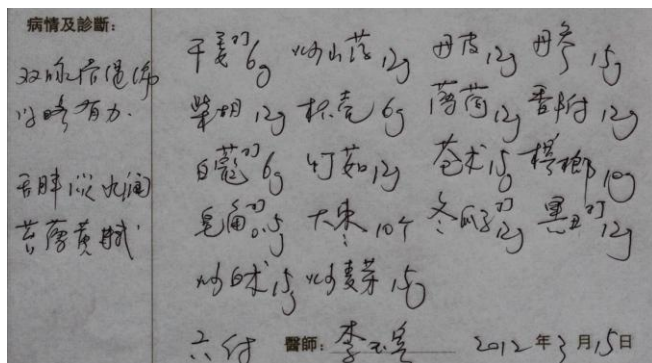 病情及診斷：
双脉
有力.
舌胖淡
苔薄黄腻
干姜 6g 炒山药 12g 丹皮 12g 丹参 15g
柴胡 12g 枳壳 6g 12g 香附 12g
白蔻 6g 竹茹 12g 苍术 15g 槟榔 10g
皂角 0.5g 大枣 10个 冬瓜子 12g 黑丑 12g
炒白术 15g 炒麦芽 15g
六付 醫師：李 2012年3月15日